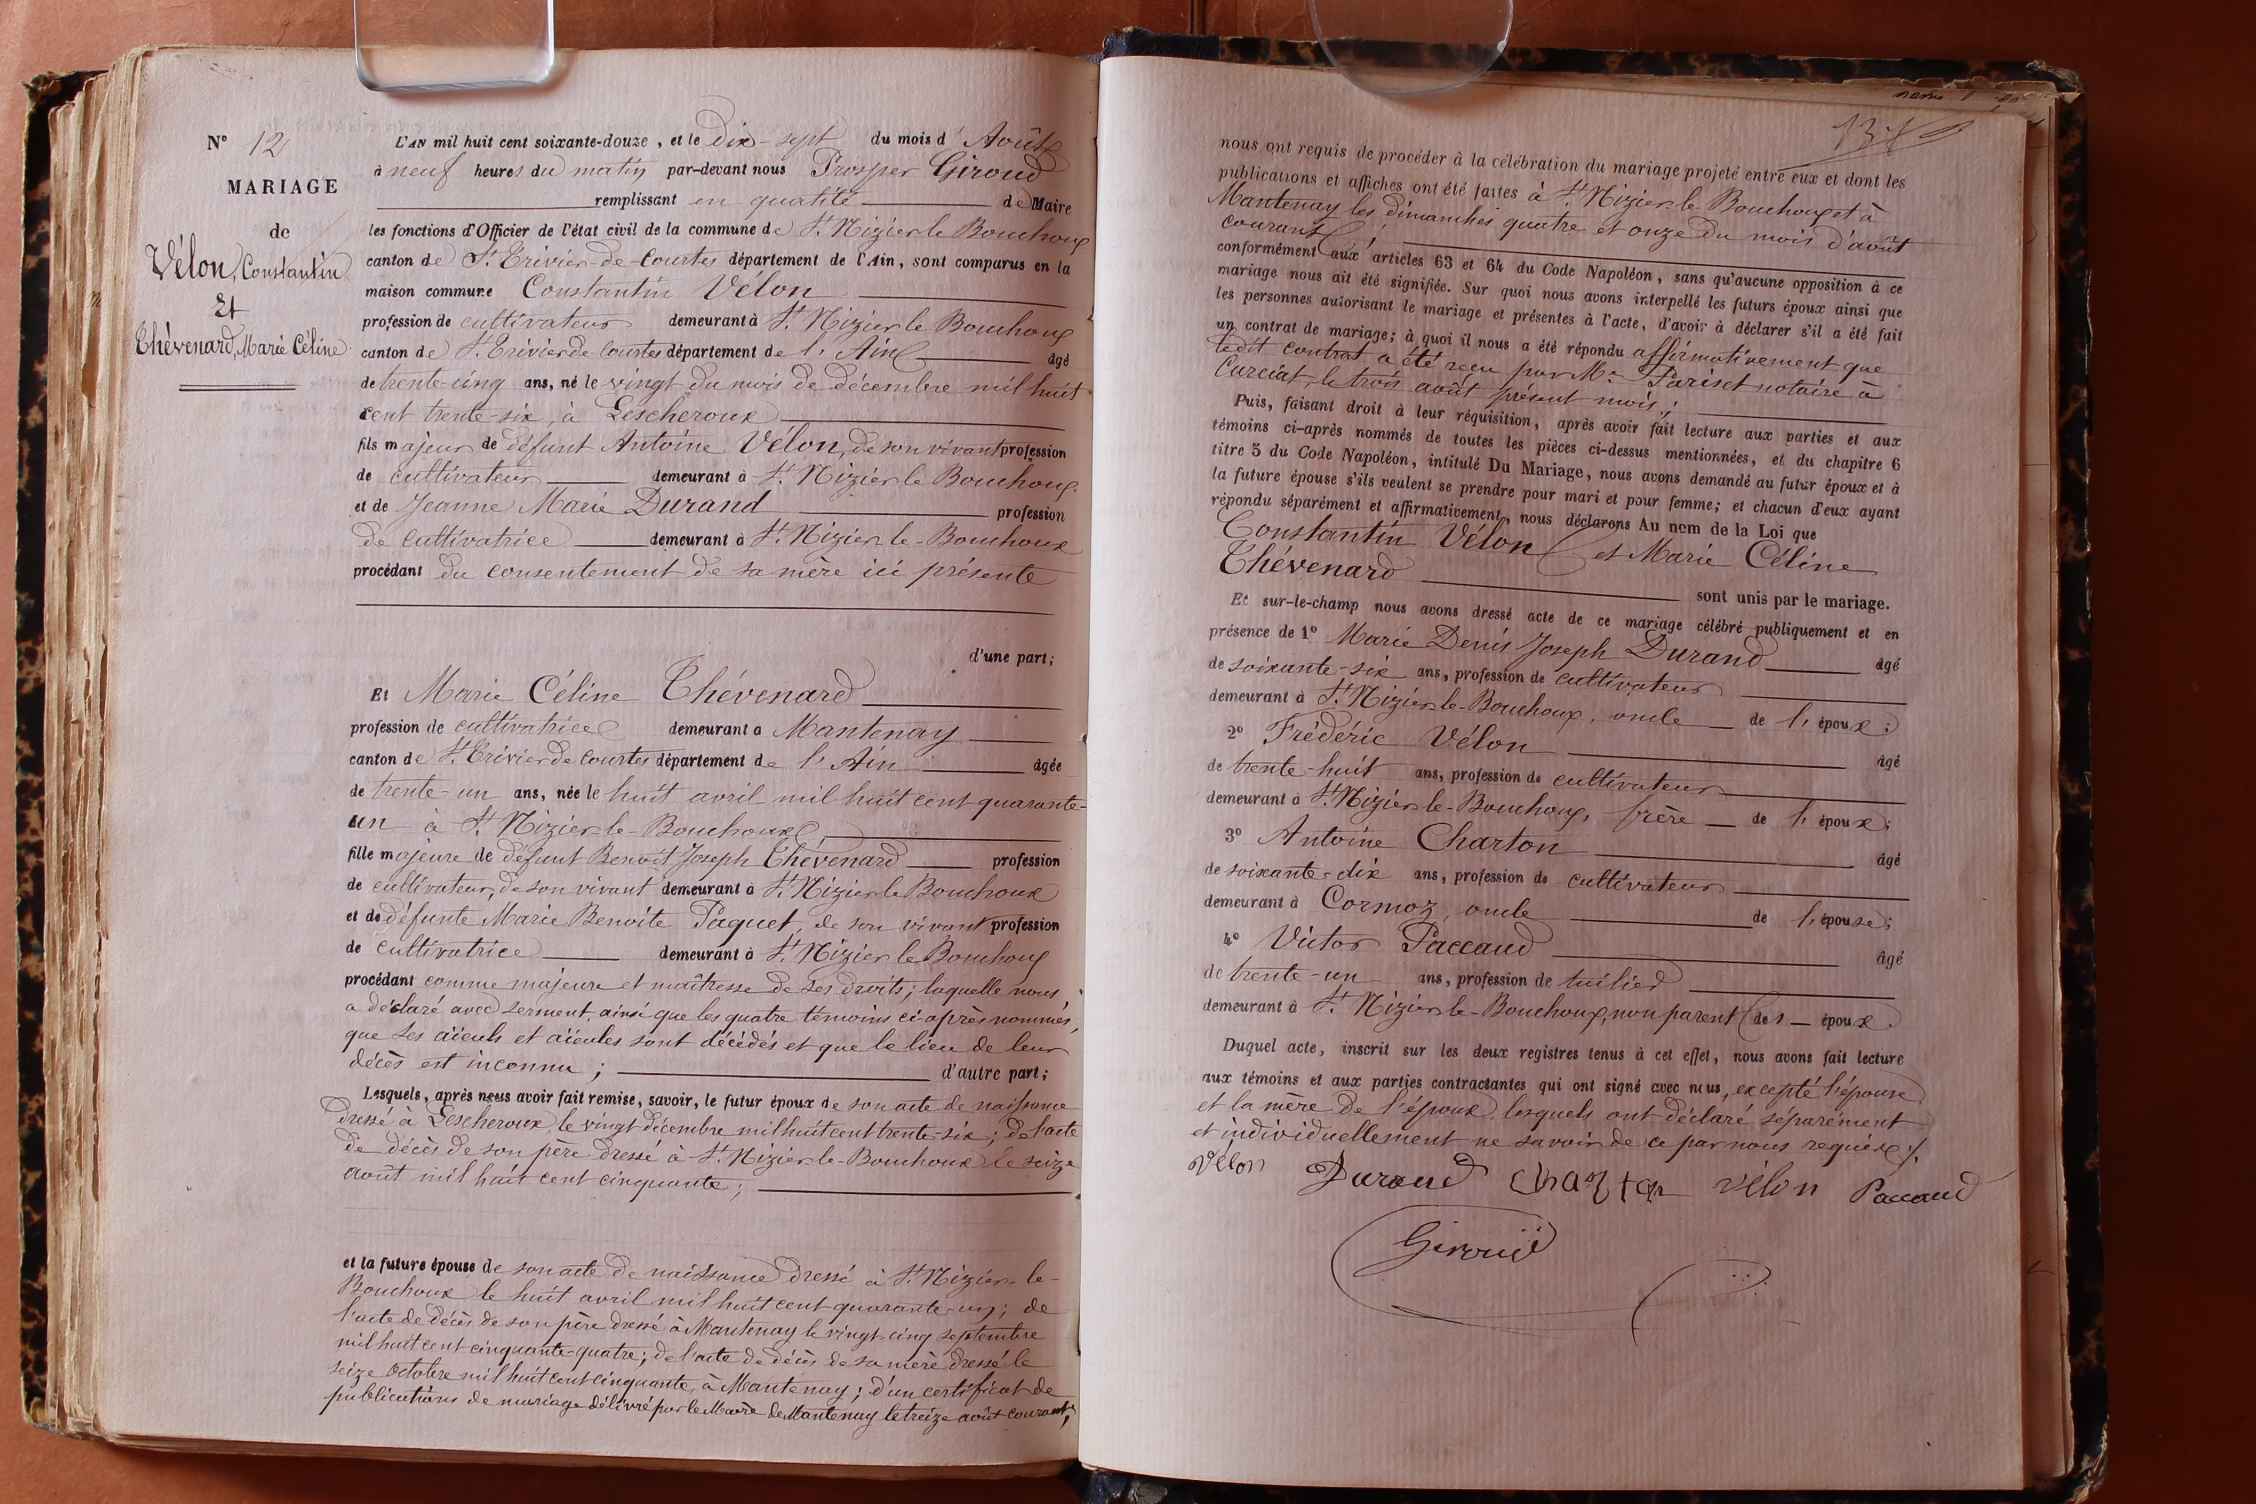 N° 12
MARIAGE
de
Vélon, Constantin
Et
Thévenard, Marie Céline
L'AN mil huit cent soixante-douze, et le dix-sept du mois d'Août
à neuf heures du matin par-devant nous Prosper Giroud
remplissant en qualité de Maire
les fonctions d'Officier de l'état civil de la commune de St Nizier le Bouchoux
canton de St Trivier-de-Courtes département de l'Ain, sont comparus en la
maison commune Constantin Vélon
profession de cultivateur demeurant à St Nizier le Bouchoux
canton de St Trivier de Courtes département de l'Ain âgé
de trente-cinq ans, né le vingt du mois de décembre mil huit
cent trente-six, à Lescheroux
fils majeur de défunt Antoine Vélon, de son vivant profession
de cultivateur demeurant à St Nizier le Bouchoux
et de Jeanne Marie Durand profession
de cultivatrice demeurant à St Nizier-le-Bouchoux
procédant du consentement de sa mère ici présente
d'une part;
Et Marie Céline Thévenard
profession de cultivatrice demeurant à Mantenay
canton de St Trivier de Courtes département de l'Ain âgée
de trente-un ans, née le huit avril mil huit cent quarante-
un à St Nizier-le-Bouchoux
fille majeure de défunt Benoît Joseph Thévenard profession
de cultivateur, de son vivant demeurant à St Nizier le Bouchoux
et de défunte Marie Benoite Paquet, de son vivant profession
de cultivatrice demeurant à St Nizier le Bouchoux
procédant comme majeure et maîtresse de ses droits; laquelle nous
a déclaré avec serment ainsi que les quatre témoins ci-après nommés,
que ses aïeuls et aïeules sont décédés et que le lieu de leur
décès est inconnu; d'autre part;
Lesquels, après nous avoir fait remise, savoir, le futur époux de son acte de naissance
dressé à Lescheroux, le vingt décembre mil huit cent trente-six; de l'acte
de décès de son père dressé à St Nizier-le-Bouchoux le seize
août mil huit cent cinquante;
et la future épouse de son acte de naissance dressé à St Nizier-le-
Bouchoux le huit avril mil huit cent quarante-un; de
l'acte de décès de son père dressé à Mantenay le vingt-cinq septembre
mil huit cent cinquante-quatre; de l'acte de décès de sa mère dressé le
seize octobre mil huit cent cinquante, à Mantenay; d'un certificat de
publications de mariage délivré par le Maire de Mantenay le treize août courant,
nous ont requis de procéder à la célébration du mariage projeté entre eux et dont les
publications et affiches ont été faites à St Nizier-le Bouchoux et à
Mantenay les dimanches quatre et onze du mois d'août
courant,
conformément aux articles 63 et 64 du Code Napoléon, sans qu'aucune opposition à ce
mariage nous ait été signifiée. Sur quoi nous avons interpellé les futurs époux ainsi que
les personnes autorisant le mariage et présentes à l'acte, d'avoir à déclarer s'il a été fait
un contrat de mariage; à quoi il nous a été répondu affirmativement que
ledit contrat a été reçu par Me Pariset notaire à
Curciat, le trois août présent mois;
Puis, faisant droit à leur réquisition, après avoir fait lecture aux parties et aux
témoins ci-après nommés de toutes les pièces ci-dessus mentionnées, et du chapitre 6
titre 5 du Code Napoléon, intitulé Du Mariage, nous avons demandé au futur époux et à
la future épouse s'ils veulent se prendre pour mari et pour femme; et chacun d'eux ayant
répondu séparément et affirmativement, nous déclarons Au nom de la Loi que
Constantin Vélon et Marie Céline
Thévenard
sont unis par le mariage.
Et sur-le-champ nous avons dressé acte de ce mariage célébré publiquement et en
présence de 1° Marie Denis Joseph Durand âgé
de soixante-six ans, profession de cultivateur
demeurant à St Nizier-le-Bouchoux, oncle de l'époux;
2° Frédéric Vélon âgé
de trente-huit ans, profession de cultivateur
demeurant à St Nizier-le-Bouchoux, frère de l'époux;
3° Antoine Charton âgé
de soixante-dix ans, profession de cultivateur
demeurant à Cormoz, oncle de l'épouse;
4° Victor Paccaud âgé
de trente-un ans, profession de tuilier
demeurant à St Nizier-le-Bouchoux, non parent des époux.
Duquel acte, inscrit sur les deux registres tenus à cet effet, nous avons fait lecture
aux témoins et aux parties contractantes qui ont signé avec nous, excepté l'épouse
et la mère de l'époux lesquels ont déclaré séparément
et individuellement ne savoir de ce par nous requises.
Vélon Durand Charton Vélon Paccaud
Giroud